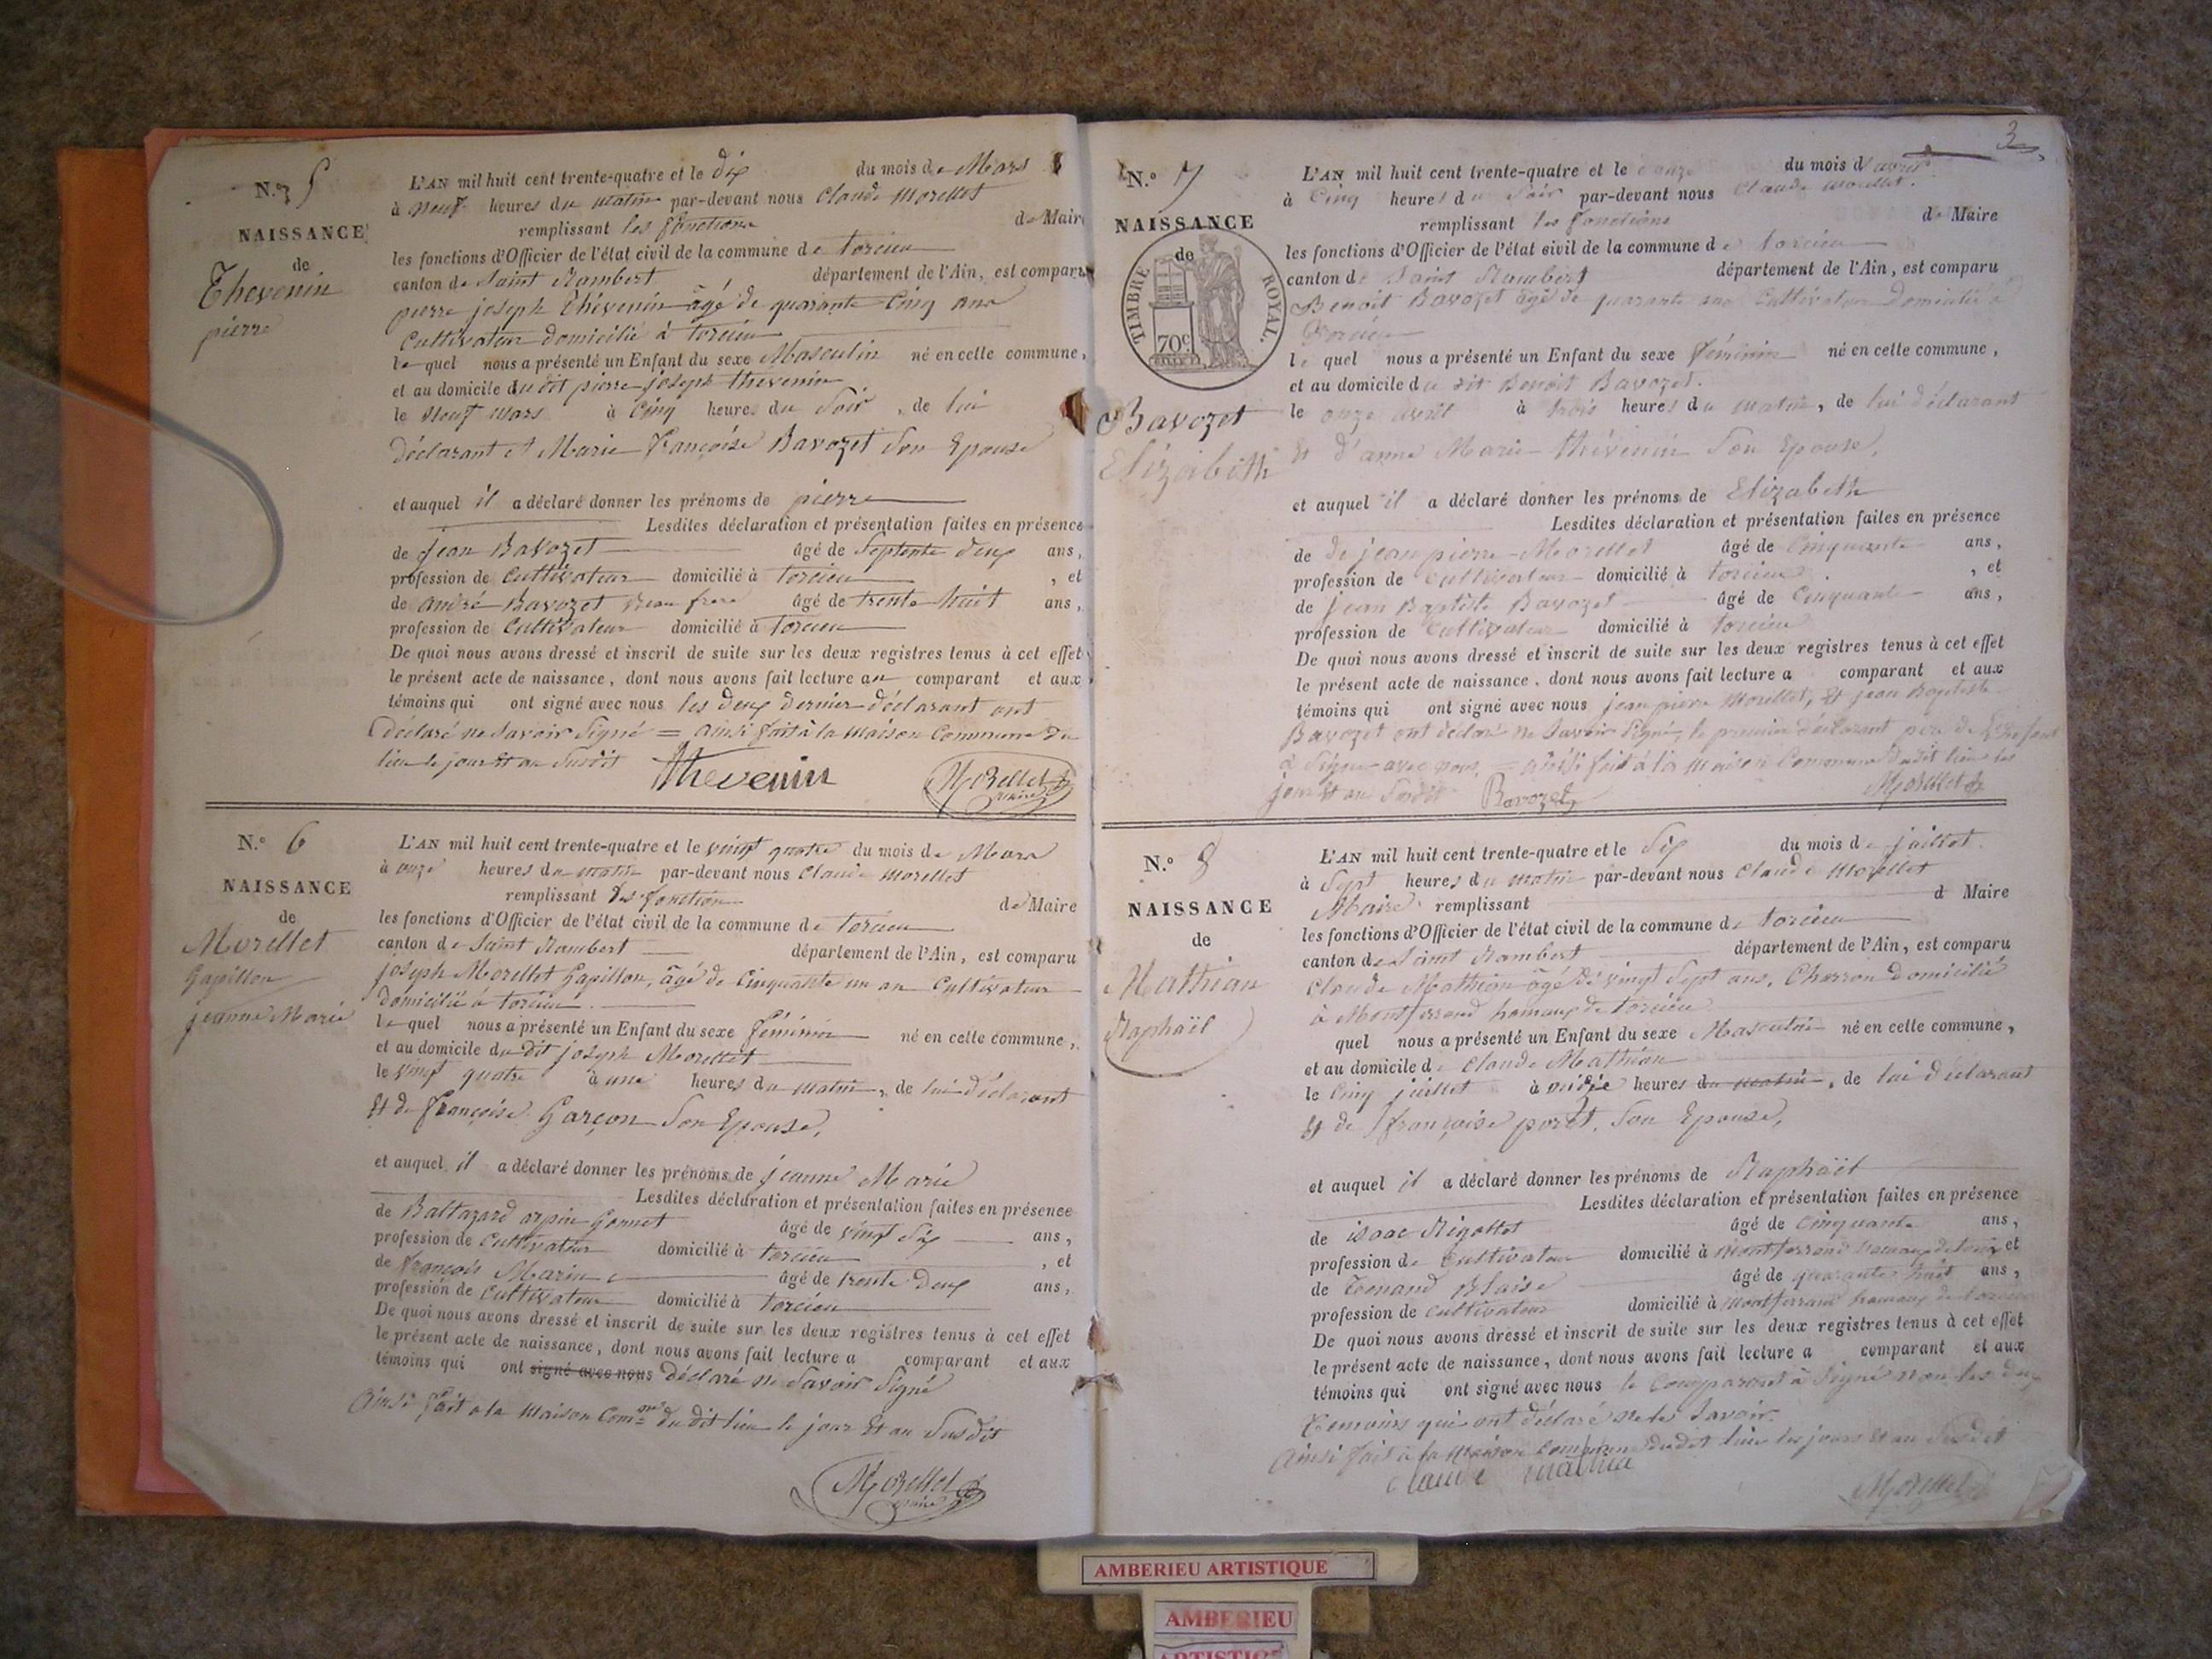 N.º 5
NAISSANCE
de
Thevenin
pierre
L'AN mil huit cent trente-quatre et le dix du mois de Mars
à neuf heures du matin par-devant nous Claude Morellet
remplissant les fonctions de Maire
les fonctions d'Officier de l'état civil de la commune de torcieu
canton de Saint Rambert département de l'Ain, est comparu
pierre joseph thévenin âgé de quarante Cinq ans
Cultivateur domicilié à torcieu
lequel nous a présenté un Enfant du sexe Masculin né en cette commune,
et au domicile du dit pierre joseph thevenin
le neuf mars à Cinq heures du Soir, de lui
déclarant et Marie Françoise Bavozet Son Epouse
et auquel il a déclaré donner les prénoms de pierre
Lesdites déclaration et présentation faites en présence
de jean Bavozet âgé de Septente deux ans,
profession de Cultivateur domicilié à torcieu, et
de andré Bavozet beau frere âgé de trente huit ans,
profession de Cultivateur domicilié à Torcieu
De quoi nous avons dressé et inscrit de suite sur les deux registres tenus à cet effet
le présent acte de naissance, dont nous avons fait lecture au comparant et aux
témoins qui ont signé avec nous les deux dernier déclarant ont
déclaré ne Savoir Signé = ainsi fait à la Maison Commune du
lieu le jour et an Susdit
Thevenin Morellet maire
N.º 6
NAISSANCE
de
Morellet
Gapillon
jeanne Marie
L'AN mil huit cent trente-quatre et le vingt quatre du mois de Mars
à onze heures du matin par-devant nous Claude Morellet
remplissant les fonction de Maire
les fonctions d'Officier de l'état civil de la commune de torcieu
canton de Saint Rambert département de l'Ain, est comparu
joseph Morellet Gapillon, âgé de Cinquante un an Cultivateur
domicilié à torcieu
lequel nous a présenté un Enfant du sexe féminin né en cette commune,
et au domicile du dit joseph Morellet
le vingt quatre à une heures du matin, de lui déclarant
Et de françoise Garçon Son Epouse,
et auquel il a déclaré donner les prénoms de jeanne Marie
Lesdites déclaration et présentation faites en présence
de Baltazard arpin Gonnet âgé de vingt Six ans,
profession de Cultivateur domicilié à torcieu, et
de françois Marin âgé de trente deux ans,
profession de Cultivateur domicilié à torcieu
De quoi nous avons dressé et inscrit de suite sur les deux registres tenus à cet effet
le présent acte de naissance, dont nous avons fait lecture a comparant et aux
témoins qui ont signé avec nous déclaré ne Savoir Signé
Ainsi fait a la Maison Com.ne du dit lieu le jour Et an Susdit
Morellet maire
3
N.º 7
NAISSANCE
de
TIMBRE ROYAL.
70c
Bavozet
Elizabeth
L'AN mil huit cent trente-quatre et le onze du mois d'avril
à Cinq heures du Soir par-devant nous Claude Morellet.
remplissant les fonctions de Maire
les fonctions d'Officier de l'état civil de la commune de torcieu
canton de Saint Rambert département de l'Ain, est comparu
Benoit Bavozet âgé de quarante ans Cultivateur domicilié à
Torcieu
le quel nous a présenté un Enfant du sexe féminin né en cette commune,
et au domicile du dit Benoit Bavozet.
le onze avril à trois heures du matin, de lui déclarant
Et d'anne Marie thévenin Son Epouse,
et auquel il a déclaré donner les prénoms de Elizabeth
Lesdites déclaration et présentation faites en présence
de de jean pierre Morellet âgé de Cinquante ans,
profession de Cultivateur domicilié à torcieu, et
de jean Baptiste Bavozet âgé de Cinquante ans,
profession de Cultivateur domicilié à torcieu
De quoi nous avons dressé et inscrit de suite sur les deux registres tenus à cet effet
le présent acte de naissance, dont nous avons fait lecture a comparant et aux
témoins qui ont signé avec nous jean pierre Morellet, Et jean Baptiste
Bavozet ont déclaré ne Savoir Signé, le premier déclarant père de L'enfant
à Signé avec nous. = ainsi fait à la Maison Commune dudit lieu les
jour Et an Susdit Bavozet Morellet
N.º 8
NAISSANCE
de
Mathian
Raphaël
L'AN mil huit cent trente-quatre et le Six du mois de juillet
à Sept heures du matin par-devant nous Claude Morellet
Maire remplissant d Maire
les fonctions d'Officier de l'état civil de la commune de torcieu
canton de Saint Rambert département de l'Ain, est comparu
Claude Mathian âgé de vingt Sept ans, Charron domicilié
à Montferrand hameau de torcieu
quel nous a présenté un Enfant du sexe Masculin né en cette commune,
et au domicile de Claude Mathian
le Cinq juillet à heures du matin, de lui déclarant
Et de françoise poret, Son Epouse,
et auquel il a déclaré donner les prénoms de Raphaël
Lesdites déclaration et présentation faites en présence
de isaac Rigollet âgé de Cinquante ans,
profession de Cultivateur domicilié à Montferrand hameau de torcieu et
de Tenand Blaise âgé de quarante huit ans,
profession de Cultivateur domicilié à Montferrand hameau de torcieu
De quoi nous avons dressé et inscrit de suite sur les deux registres tenus à cet effet
le présent acte de naissance, dont nous avons fait lecture a comparant et aux
témoins qui ont signé avec nous le Comparant à Signé non les deux
Temoins qui ont déclaré ne le Savoir.
Ainsi fait à la Maison Commune dudit lieu les jours Et an Susdit
Claude mathia Morellet
AMBERIEU ARTISTIQUE
AMBERIEU
ARTISTIQUE